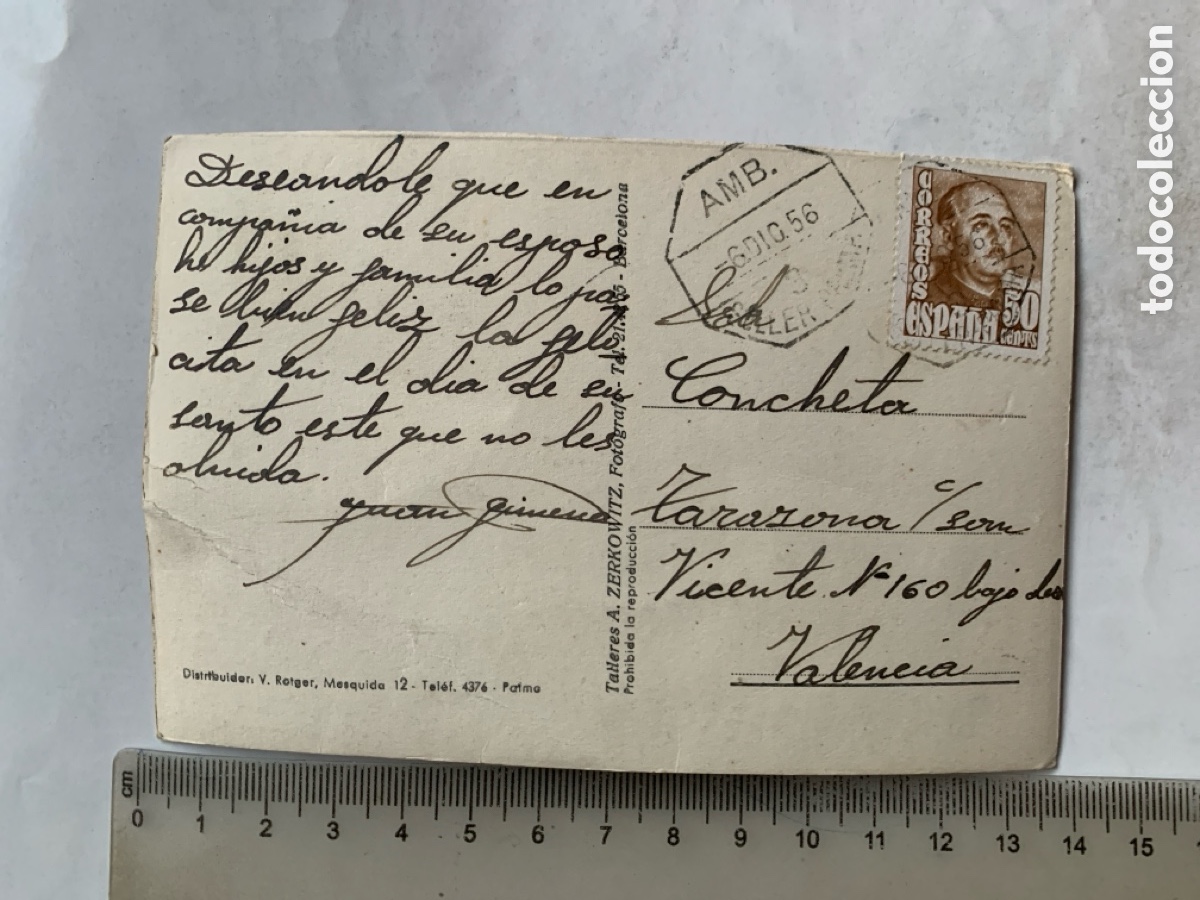 Deseandole que en
compañia de su esposo
he hijos y familia lo pa
se bien feliz la feli
cita en el dia de su
santo este que no les
olvida.
Juan Gimeno
Distribuidor: V. Rotger, Mesquida 12 - Teléf. 4376 - Palma
Talleres A. ZERKOWITZ, Fotógrafo - Tel. - Barcelona
Prohibida la reproducción
AMB.
6 DIC. 56
SOLLER
CORREOS
ESPAÑA
50
CENTS
Concheta
Tarazona c/ san
Vicente Nº 160 bajo
Valencia
todocoleccion
cm
0 1 2 3 4 5 6 7 8 9 10 11 12 13 14 15